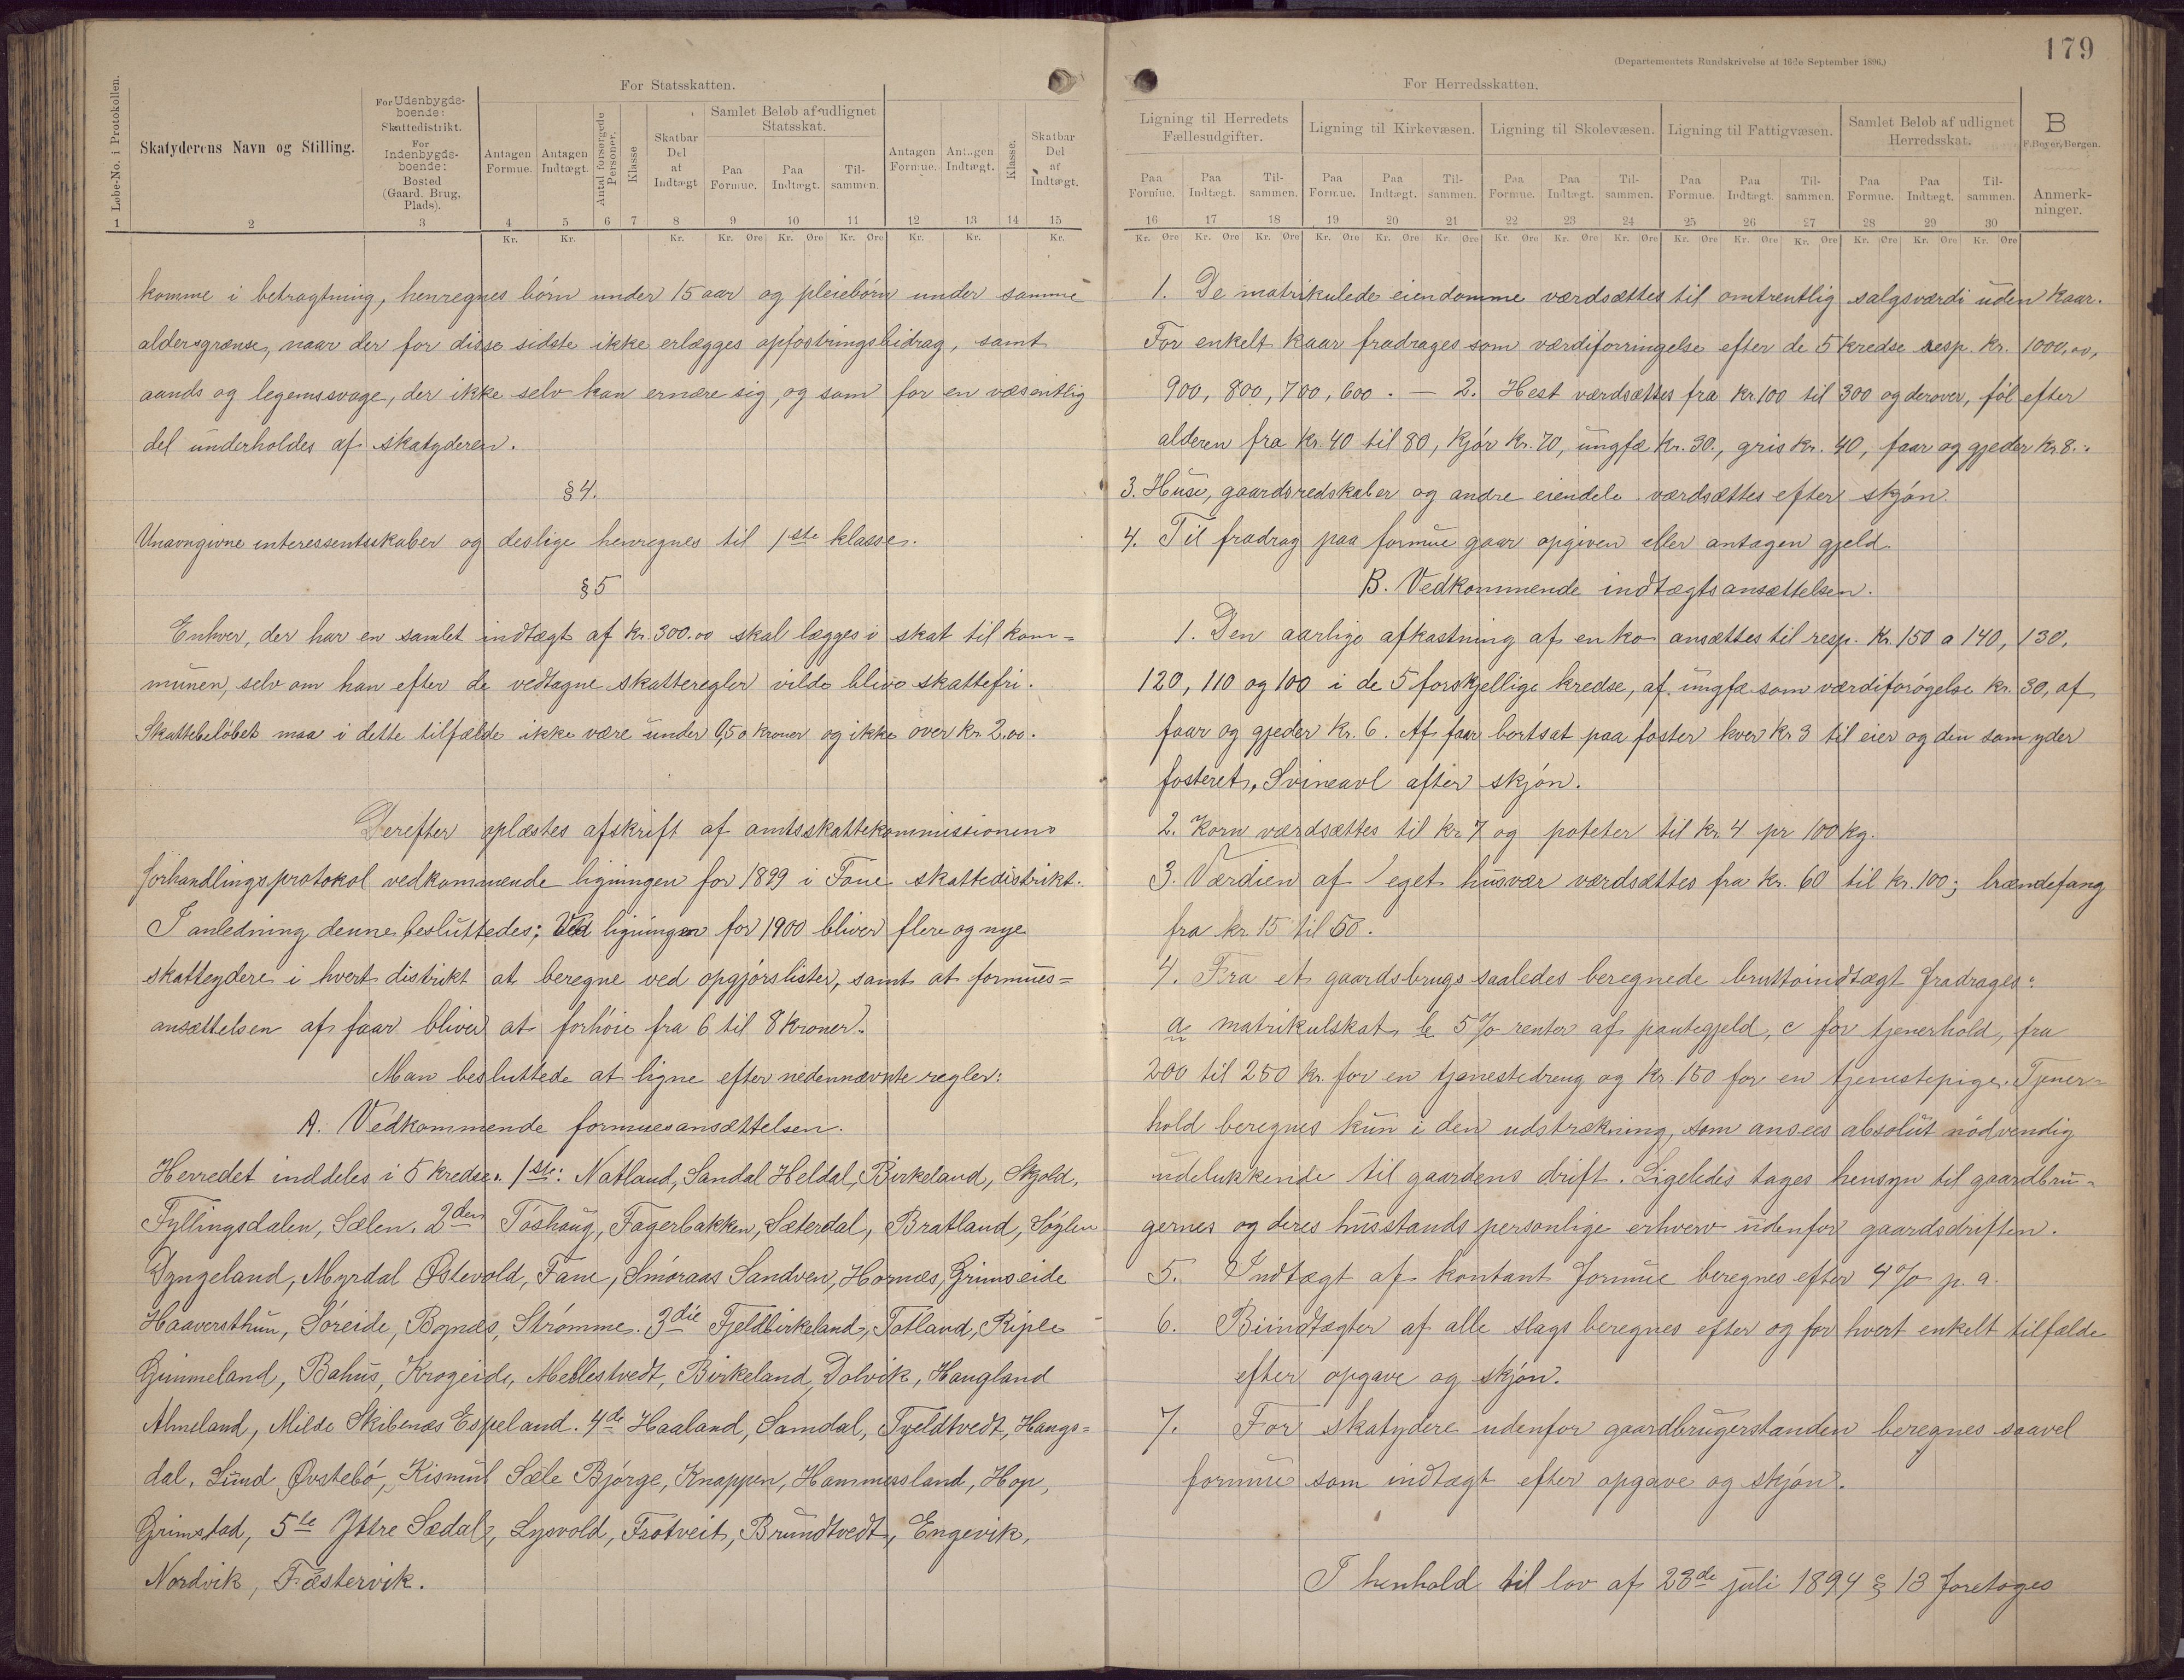 179
(Departementets Rundskrivelse af 16de September 1896.)
For Statsskatten.
Løbe-No. i Protokollen.
Skatyderens Navn og Stilling.
For Udenbygdsboende:
Skattedistrikt.
For Indenbygdsboende:
Bosted
(Gaard, Brug, Plads).
Antagen Formue.
Antagen Indtægt.
Antal forsørgede Personer.
Klasse
Skatbar Del af Indtægt
Samlet Beløb af udlignet Statsskat.
Paa Formue.
Paa Indtægt.
Tilsammen.
Antagen Formue.
Antagen Indtægt.
Klasse.
Skatbar Del af Indtægt.
1 2 3 4 5 6 7 8 9 10 11 12 13 14 15
Kr. Kr. Kr. Kr. Øre Kr. Øre Kr. Øre Kr. Kr. Kr.
komme i betragtning, henregnes börn under 15 aar og pleiebörn under samme
aldersgrænse, naar der for disse sidste ikke erlægges opfostringsbidrag, samt
aands og legemssvage, der ikke selv kan ernære sig, og som for en væsentlig
del underholdes af skatyderen.
§ 4.
Unavngivne interessentsskaber og deslige henregnes til 1ste klasse.
§ 5
Enhver, der har en samlet indtægt af kr. 300.00 skal lægges i skat til kom=
munen, selv om han efter de vedtagne skatteregler vilde blive skattefri.
Skattebelöbet maa i dette tilfælde ikke være under 0,50 kroner og ikke over kr. 2.00.
Derefter oplæstes afskrift af amtsskattekommissionens
forhandlingsprotokol vedkommende ligningen for 1899 i Fane skattedistrikt.
I anledning denne besluttedes: Ved ligningen for 1900 bliver flere og nye
skatteydere i hvert distrikt at beregne ved opgjörslister, samt at formues=
ansættelsen af faar bliver at forhöie fra 6 til 8 kroner.
Man besluttede at ligne efter nedennævnte regler:
A. Vedkommende formuesansættelsen.
Herredet inddeles i 5 kredse. 1ste: Natland, Sandal Heldal, Birkeland, Skjold,
Fyllingsdalen, Sælen. 2den Töshaug, Fagerbakken, Sæterdal, Bratland, Söylen
Dyngeland, Myrdal Östevold, Fane, Smöraas Sandven, Hornæs, Grimseide
Haaversthun, Söreide, Bognæs, Strömme. 3die Fjeldbirkeland, Totland, Riple
Gimmeland, Bahus, Krogeide, Mellestvedt, Birkeland, Dolvik, Haugland
Almeland, Milde Skibenæs Espeland. 4de Haaland, Samdal, Tveldtvedt, Haugs=
dal, Lund, Övstebö, Kismul Sæle Björge, Knappen, Hammersland, Hop,
Grimstad, 5te Yttre Sædal, Lysvold, Trotveit, Brundtvedt, Engevik,
Nordvik, Fæstervik.
For Herredsskatten.
Ligning til Herredets Fællesudgifter.
Ligning til Kirkevæsen.
Ligning til Skolevæsen.
Ligning til Fattigvæsen.
Samlet Beløb af udlignet Herredsskat.
B
F. Beyer, Bergen.
Paa Formue. Paa Indtægt. Tilsammen. Paa Formue. Paa Indtægt. Tilsammen. Paa Formue. Paa Indtægt. Tilsammen. Paa Formue. Paa Indtægt. Tilsammen. Paa Formue. Paa Indtægt. Tilsammen.
Anmerkninger.
16 17 18 19 20 21 22 23 24 25 26 27 28 29 30
Kr. Øre Kr. Øre Kr. Øre Kr. Øre Kr. Øre Kr. Øre Kr. Øre Kr. Øre Kr. Øre Kr. Øre Kr. Øre Kr. Øre Kr. Øre Kr. Øre Kr. Øre
1. De matrikulede eiendomme værdsættes til omtrentlig salgsværdi uden kaar.
For enkelt kaar fradrages som værdiforringelse efter de 5 kredse resp. kr. 1000,00,
900, 800, 700, 600. — 2. Hest værdsættes fra kr 100 til 300 og derover, föl efter
alderen fra kr. 40 til 80, kjör kr. 70, ungfæ kr. 30., gris kr. 40, faar og gjeder kr 8.
3. Huse, gaardsredskaber og andre eiendele værdsættes efter skjön.
4. Til fradrag paa formue gaar opgiven eller antagen gjeld.
B. Vedkommende indtægtsansættelsen.
1. Den aarlige afkastning af en ko ansættes til resp. kr. 150 a 140, 130,
120, 110 og 100 i de 5 forskjellige kredse, af ungfæ som værdiforögelse kr. 30, af
faar og gjeder kr. 6. Af faar bortsat paa foster hver kr 3 til eier og den som yder
fosteret. Svineavl efter skjön.
2. Korn værdsættes til kr 7 og poteter til kr 4 pr 100 kg.
3. Værdien af eget husvær værdsættes fra kr. 60 til kr. 100; brændefang
fra kr. 15 til 50.
4. Fra et gaardsbrugs saaledes beregnede bruttoindtægt fradrages:
a matrikulskat, b 5% renter af pantegjeld, c for tjenerhold, fra
200 til 250 kr. for en tjenestedreng og kr. 150 for en tjenestepige. Tjener=
hold beregnes kun i den udstrækning, som ansees absolut nödvendig
udelukkende til gaardens drift. Ligeledes tages hensyn til gaardbru=
gernes og deres husstands personlige erhverv udenfor gaardsdriften.
5. Indtægt af kontant formue beregnes efter 4% p. a.
6. Biindtægter af alle slags beregnes efter og for hvert enkelt tilfælde
efter opgave og skjön.
7. For skatydere udenfor gaardbrugerstanden beregnes saavel
formue som indtægt efter opgave og skjön.
I henhold til lov af 23de juli 1894 § 13 foretoges